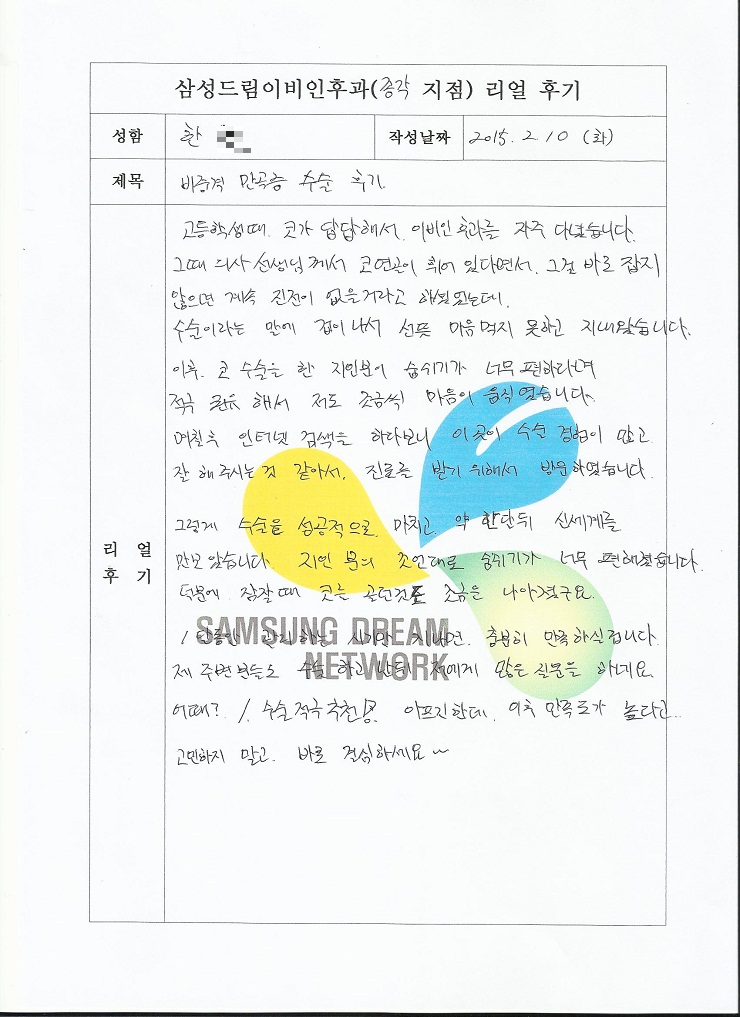 삼성드림이비인후과(종각 지점) 리얼 후기
성함 한
작성날짜 2015. 2. 10 (화)
제목 비중격 만곡증 수술 후기
리 얼
후 기
고등학생때. 코가 답답해서. 이비인후과를 자주 다녔습니다.
그때 의사 선생님께서 코 연골이 휘어 있다면서. 그걸 바로 잡지
않으면 계속 진전이 없을거라고 하셨었는데.
수술이라는 말에 겁이나서 선뜻 마음먹지 못하고 지내왔습니다.
이후. 코 수술을 한 지인분이 숨쉬기가 너무 편하다며
적극 권유 해서 저도 조금씩 마음이 움직였습니다.
며칠후 인터넷 검색을 하다보니 이곳이 수술 경험이 많고
잘 해주시는 것 같아서. 진료를 받기 위해서 방문하였습니다.
그렇게 수술을 성공적으로 마치고. 약 한달뒤 신세계를
맛보았습니다. 지인 분의 조언대로 숨쉬기가 너무 편해졌습니다.
덕분에 잠잘때 코를 골던것도 조금은 나아졌구요.
SAMSUNG DREAM
NETWORK
관리하는 시기만 지나면. 충분히 만족하실겁니다.
제 주변분들도 수술하고 난뒤 저에게 많은 질문을 하네요.
어때? /. 수술적극추천. 아프긴한데. 이후 만족도가 높다고..
고민하지 말고. 바로 결심하세요~